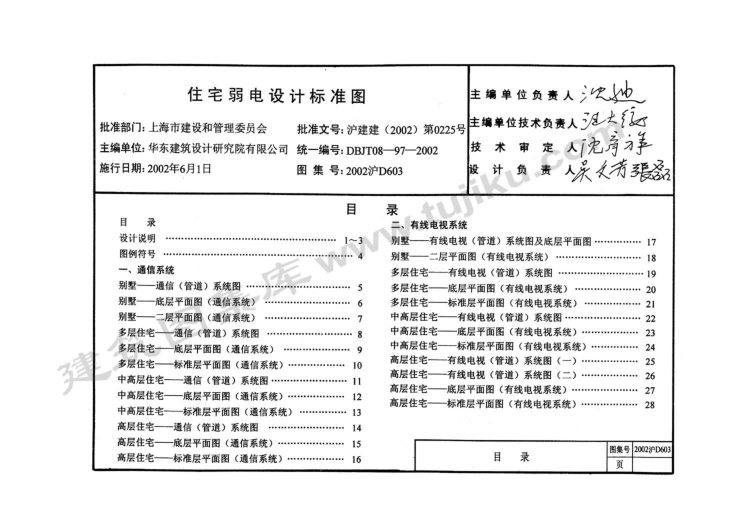 住宅弱电设计标准图
批准部门: 上海市建设和管理委员会
批准文号: 沪建建（2002）第0225号
主编单位: 华东建筑设计研究院有限公司
统一编号: DBJT08—97—2002
施行日期: 2002年6月1日
图 集 号: 2002沪D603
主编单位负责人
主编单位技术负责人
技 术 审 定 人
设 计 负 责 人
目 录
目 录
设计说明 …… 1~3
图例符号 …… 4
一、通信系统
别墅——通信（管道）系统图 …… 5
别墅——底层平面图（通信系统） …… 6
别墅——二层平面图（通信系统） …… 7
多层住宅——通信（管道）系统图 …… 8
多层住宅——底层平面图（通信系统） …… 9
多层住宅——标准层平面图（通信系统） …… 10
中高层住宅——通信（管道）系统图 …… 11
中高层住宅——底层平面图（通信系统） …… 12
中高层住宅——标准层平面图（通信系统） …… 13
高层住宅——通信（管道）系统图 …… 14
高层住宅——底层平面图（通信系统） …… 15
高层住宅——标准层平面图（通信系统） …… 16
二、有线电视系统
别墅——有线电视（管道）系统图及底层平面图 …… 17
别墅——二层平面图（有线电视系统） …… 18
多层住宅——有线电视（管道）系统图 …… 19
多层住宅——底层平面图（有线电视系统） …… 20
多层住宅——标准层平面图（有线电视系统） …… 21
中高层住宅——有线电视（管道）系统图 …… 22
中高层住宅——底层平面图（有线电视系统） …… 23
中高层住宅——标准层平面图（有线电视系统） …… 24
高层住宅——有线电视（管道）系统图（一） …… 25
高层住宅——有线电视（管道）系统图（二） …… 26
高层住宅——底层平面图（有线电视系统） …… 27
高层住宅——标准层平面图（有线电视系统） …… 28
目 录
图集号 2002沪D603
页
建筑图集库 www.tujiku.com